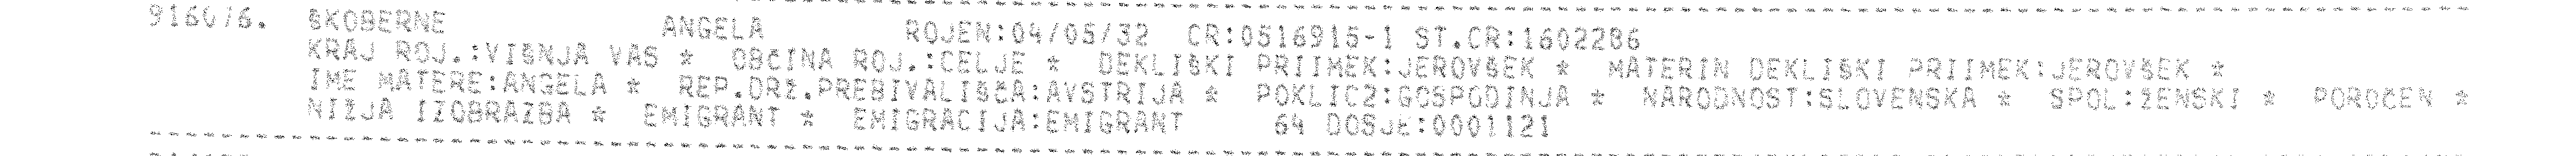 916076. ŠKOBERNE ANGELA ROJEN:04/05/32 CR:0516915-1 ST.CR:1602286
KRAJ ROJ.:VIŠNJA VAS * OBČINA ROJ.:CELJE * DEKLIŠKI PRIIMEK:JEROVŠEK * MATERIN DEKLIŠKI PRIIMEK:JEROVŠEK *
IME MATERE:ANGELA * REP.DRŽ.PREBIVALIŠČA:AVSTRIJA * POKLIC2:GOSPODINJA * NARODNOST:SLOVENSKA * SPOL:ŽENSKI * POROČEN *
NIŽJA IZOBRAZBA * EMIGRANT * EMIGRACIJA:EMIGRANT 64 DOSJE:0001121